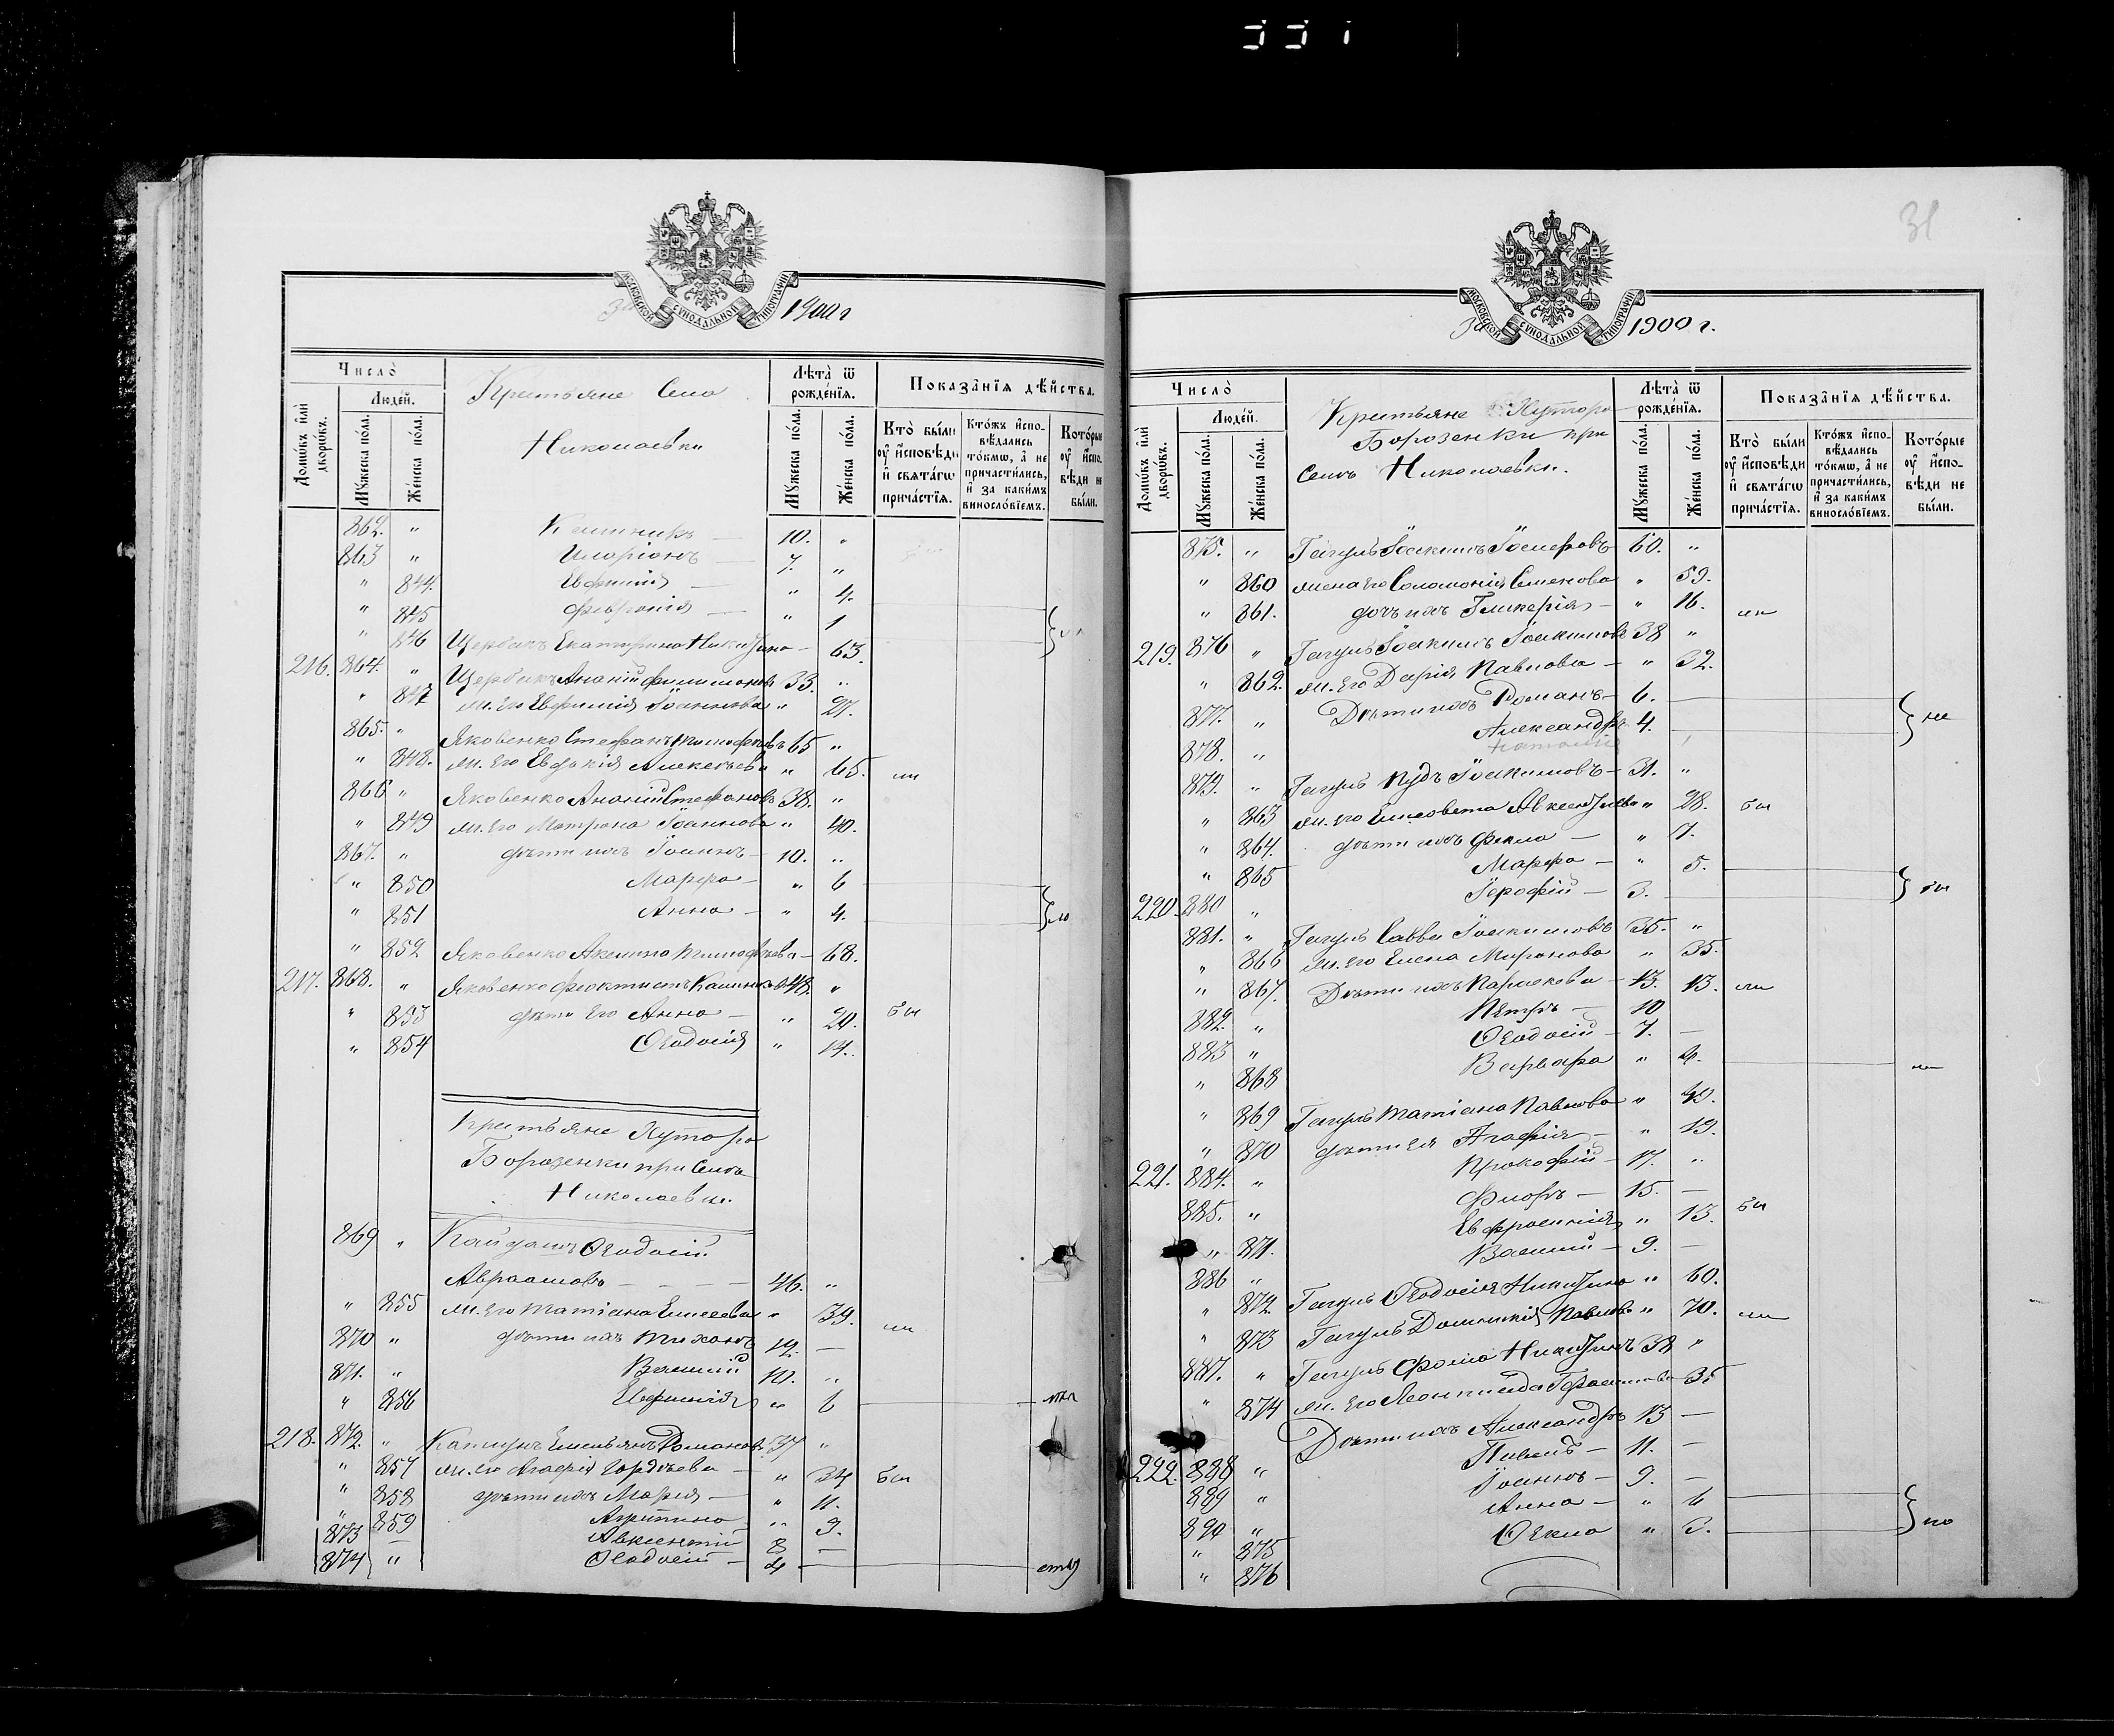 31
За 1900 г
МОСКОВСКОЙ СѴНОДАЛЬНОЙ ТИПОГРАФІИ
Число̀
Домѡ́въ и҆лѝ дворѡ́въ.
Люде́й.
Мꙋ́жеска по́ла.
Же́нска по́ла.
Крестьяне Села
Николаевки
Лѣта̀ ѿ рожде́нїѧ.
Мꙋ́жеска по́ла.
Же́нска по́ла.
Показа̑нїѧ дѣ́йства.
Кто̀ бы́ли ᲂу҆ и҆сповѣ́ди и҆ свѧта́гѡ прича́стїѧ.
Кто́жъ и҆спо-
вѣ́дались
то́кмѡ, а҆ не
причасти́лись,
и҆ за каки́мъ
виносло́вїемъ.
Кото́рые ᲂу҆ и҆спо-
вѣ́ди не
бы́ли.
862. " 10. "
863 " Иларіонъ 7. "
" 844. Евфимія — " 4.
" 845 Февронія — " 1
" 846 Щербакъ Екатерина Никитина — 63.
216. 864. " Щербакъ Ананій Филимоновъ 33. "
" 847 ж. его Евфимія Іоаннова " 27.
865. " Яковенко Стефанъ Тимофѣевъ 65 "
" 848. ж. его Евдокія Алексѣева " 65. ли
866 " Яковенко Ананій Стефановъ 38. "
" 849 ж. его Матрона Іоаннова " 40.
867. " дѣти ихъ Іоаннъ — 10. "
" 850 Марфа — " 6
" 851 Анна — " 4.
" 852 Яковенко Акилина Тимофѣева — 68.
217. 868. " Яковенко Феоктистъ 48. "
" 853 дѣти его Анна — " 20. бы
" 854 Ѳеодосія " 14.
Крестьяне Хутора
Борозенки при Селѣ
Николаевки.
869 " Кайдашъ Ѳеодосій
Авраамовъ — — — — 46. "
" 855 ж. его Татіана Елисеева " 39.
870 " дѣти ихъ Тихонъ 19. — ли
871. " Василій 10. "
" 856 Евфимія " 6
218. 872. " Емельянъ Романовъ 37 "
" 857 ж. его Агафія Гордѣева — " 34 бы
" 858 дѣти ихъ Марія — " 11.
" 859 Агрипина " 9.
873 — Авксентій 8 —
874 " Ѳеодосій — 4
За 1900 г.
МОСКОВСКОЙ СѴНОДАЛЬНОЙ ТИПОГРАФІИ
Число̀
Домѡ́въ и҆лѝ дворѡ́въ.
Люде́й.
Мꙋ́жеска по́ла.
Же́нска по́ла.
Крестьяне Хутора
Борозенки при
Селѣ Николаевки.
Лѣта̀ ѿ рожде́нїѧ.
Мꙋ́жеска по́ла.
Же́нска по́ла.
Показа̑нїѧ дѣ́йства.
Кто̀ бы́ли ᲂу҆ и҆сповѣ́ди и҆ свѧта́гѡ прича́стїѧ.
Кто́жъ и҆спо-
вѣ́дались
то́кмѡ, а҆ не
причасти́лись,
и҆ за каки́мъ
виносло́вїемъ.
Кото́рые ᲂу҆ и҆спо-
вѣ́ди не
бы́ли.
875. " Гагулъ Іоакимъ 60. "
" 860 жена его Соломонія Семенова " 59.
" 861. дочь ихъ Гликерія — " 16. ли
219. 876 " Гагулъ Іоакимъ Іоакимовъ 38 "
" 862. ж. его Дарія Павлова — " 32.
877. " Дѣти ихъ Романъ — 6.
878. " Александръ 4. не
879. " Гагулъ Іоакимовъ — 31. "
" 863 ж. его Елисавета Авксентіева " 28. бы
" 864. дѣти ихъ Фекла — " 7.
" 865 Марфа — " 5.
220. 880 " Іерофій — 3. бы
881. " Гагулъ Савва Іоакимовъ 35. "
" 866 ж. его Елена Миронова " 35.
" 867. Дѣти ихъ Параскева — 13. 13. ли
882. " Петръ — 10
883 " Ѳеодосій — 7. —
" 868 Варвара " 4. ли
" 869 Гагулъ Татіана Павлова " 42.
" 870 дѣти ея Агафія — " 19.
221. 884. " Прокофій — 17. "
885. " Флоръ — 15. — бы
" 871. Евфросинія " 13.
886 " Василій — 9. —
" 872 Гагулъ Ѳеодосія Никитина " 60.
" 873 Гагулъ Домникія Павлова " 70. ли
887. " Гагулъ Фома Никитинъ 38 "
" 874 ж. его Леонтида Герасимова 35
Дѣти ихъ Александръ 13 —
222. 888 " Павелъ — 11. —
889 " Іоаннъ — 9. —
890 " Анна — " 6
" 875 Ѳекла " 3. ло
" 876